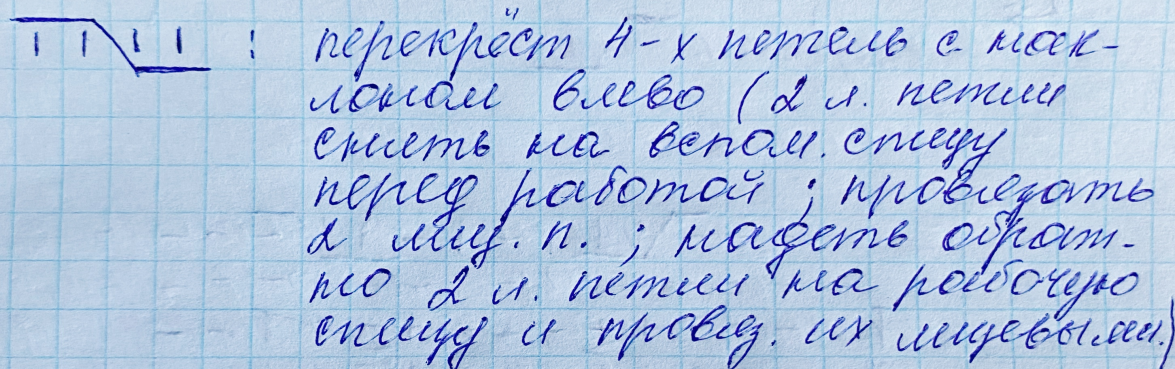 | | | | : перекрёст 4-х петель с нак-
лоном влево (2 л. петли
снять на вспом. спицу
перед работой; провязать
2 лиц. п.; надеть обрат-
но 2 л. петли на рабочую
спицу и провяз. их лицевыми.)